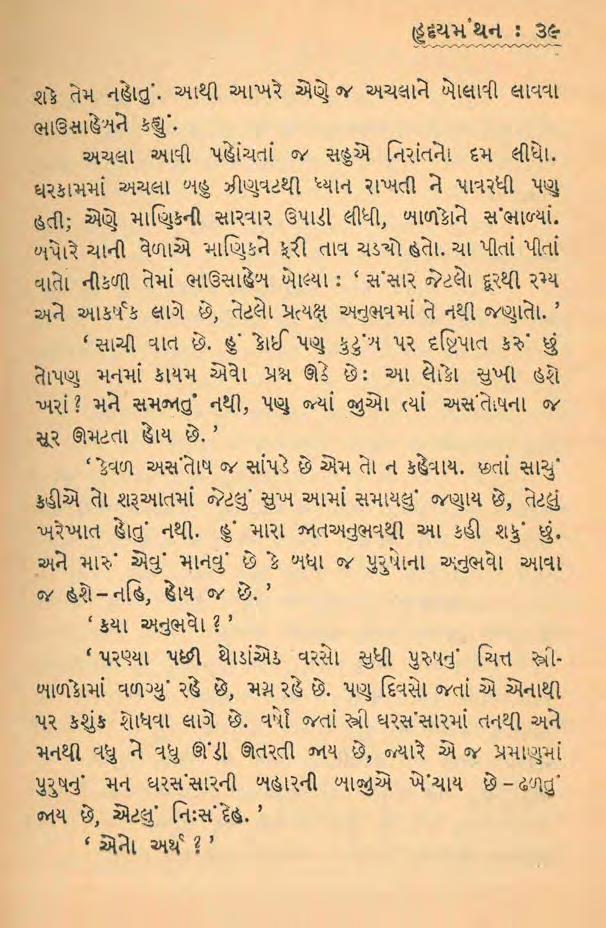 હૃદયમંથન : ૩૯
શકે તેમ નહોતું. આથી આખરે એણે જ અચલાને બોલાવી લાવવા
ભાઉસાહેબને કહ્યું.
અચલા આવી પહોંચતાં જ સહુએ નિરાંતનો દમ લીધો.
ઘરકામમાં અચલા બહુ ઝીણવટથી ધ્યાન રાખતી ને પાવરધી પણ
હતી; એણે માણિકની સારવાર ઉપાડી લીધી, બાળકોને સંભાળ્યાં.
બપોરે ચાની વેળાએ માણિકને ફરી તાવ ચડ્યો હતો. ચા પીતાં પીતાં
વાતો નીકળી તેમાં ભાઉસાહેબ બોલ્યા : ‘ સંસાર જેટલો દૂરથી રમ્ય
અને આકર્ષક લાગે છે, તેટલો પ્રત્યક્ષ અનુભવમાં તે નથી જણાતો. ’
‘ સાચી વાત છે. હું કોઈ પણ કુટુંબ પર દષ્ટિપાત કરું છું
તોપણ મનમાં કાયમ એવો પ્રશ્ન ઊઠે છે: આ લોકો સુખી હશે
ખરાં ? મને સમજાતું નથી, પણ જ્યાં જુઓ ત્યાં અસંતોષના જ
સૂર ઊમટતા હોય છે. ’
‘ કેવળ અસંતોષ જ સાંપડે છે એમ તો ન કહેવાય. છતાં સાચું
કહીએ તો શરૂઆતમાં જેટલું સુખ આમાં સમાયલું જણાય છે, તેટલું
ખરેખાત હોતું નથી. હું મારા જાતઅનુભવથી આ કહી શકું છું.
અને મારું એવું માનવું છે કે બધા જ પુરુષોના અનુભવો આવા
જ હશે – નહિ, હોય જ છે. ’
‘ કયા અનુભવો ? ’
‘ પરણ્યા પછી થોડાંએક વરસો સુધી પુરુષનું ચિત્ત સ્ત્રી-
બાળકોમાં વળગ્યું રહે છે, મગ્ન રહે છે. પણ દિવસો જતાં એ એનાથી
પર કશુંક શોધવા લાગે છે. વર્ષો જતાં સ્ત્રી ઘરસંસારમાં તનથી અને
મનથી વધુ ને વધુ ઊંડી ઊતરતી જાય છે, જ્યારે એ જ પ્રમાણમાં
પુરુષનું મન ઘરસંસારની બહારની બાજુએ ખેંચાય છે – ઢળતું
જાય છે, એટલું નિઃસંદેહ. ’
‘ એનો અર્થ ? ’